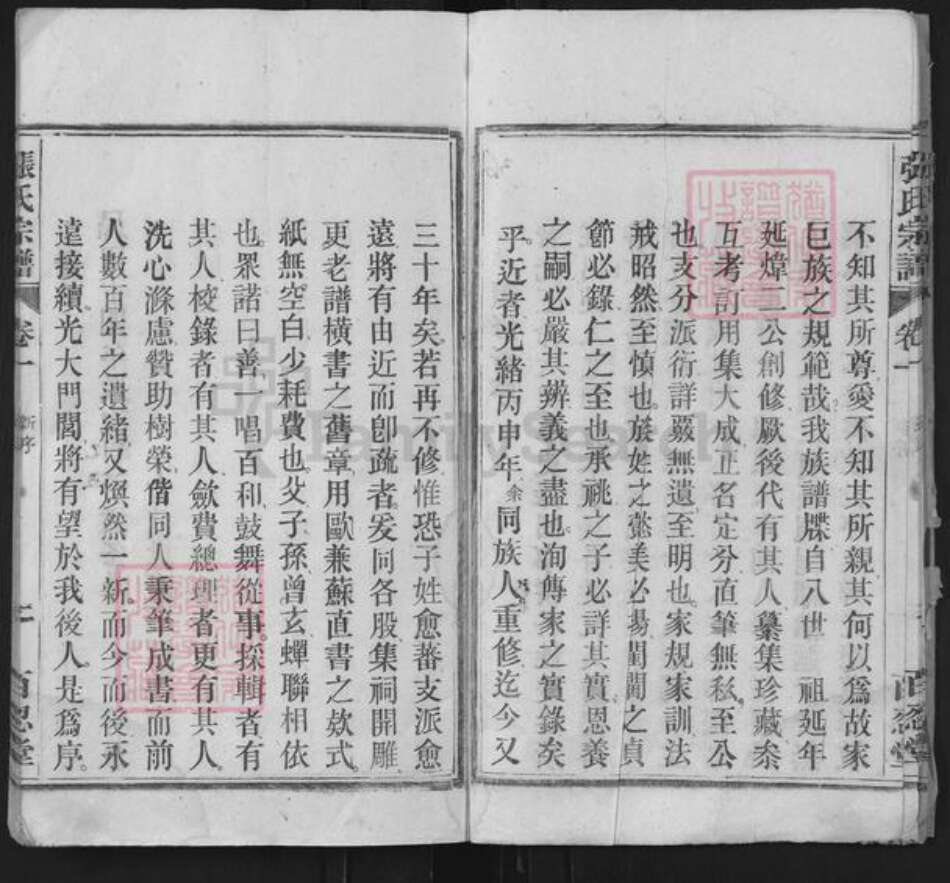 張氏宗譜
卷一
不知其所尊愛不知其所親其何以爲故家
巨族之規範哉我族譜牒自八世　祖延年
延煒二公創修厥後代有其人纂集珍藏叅
互考訂用集大成正名定分直筆無私至公
也支分派衍詳嚴無遺至明也家規家訓法
戒昭然至慎也族姓之懿美必揚閨閫之貞
節必錄仁之至也承祧之子必詳其實恩養
之嗣必嚴其辨義之盡也洵傳家之實錄矣
乎近者光緒丙申年余同族人重修迄今又
三十年矣若再不修惟恐子姓愈蕃支派愈
遠將有由近而卽疏者爰同各股集祠開雕
更老譜橫書之舊章用歐兼蘇直書之欵式
紙無空白少耗費也父子孫曾玄蟬聯相依
也衆諾曰善一唱百和鼓舞從事採輯者有
其人校錄者有其人歛費總理者更有其人
洗心滌慮贊助樹榮偕同人秉筆成書而前
人數百年之遺緒又煥然一新而今而後永
遠接續光大門閭將有望於我後人是爲序
張氏宗譜
卷一
新序
百忍堂
FamilySearch